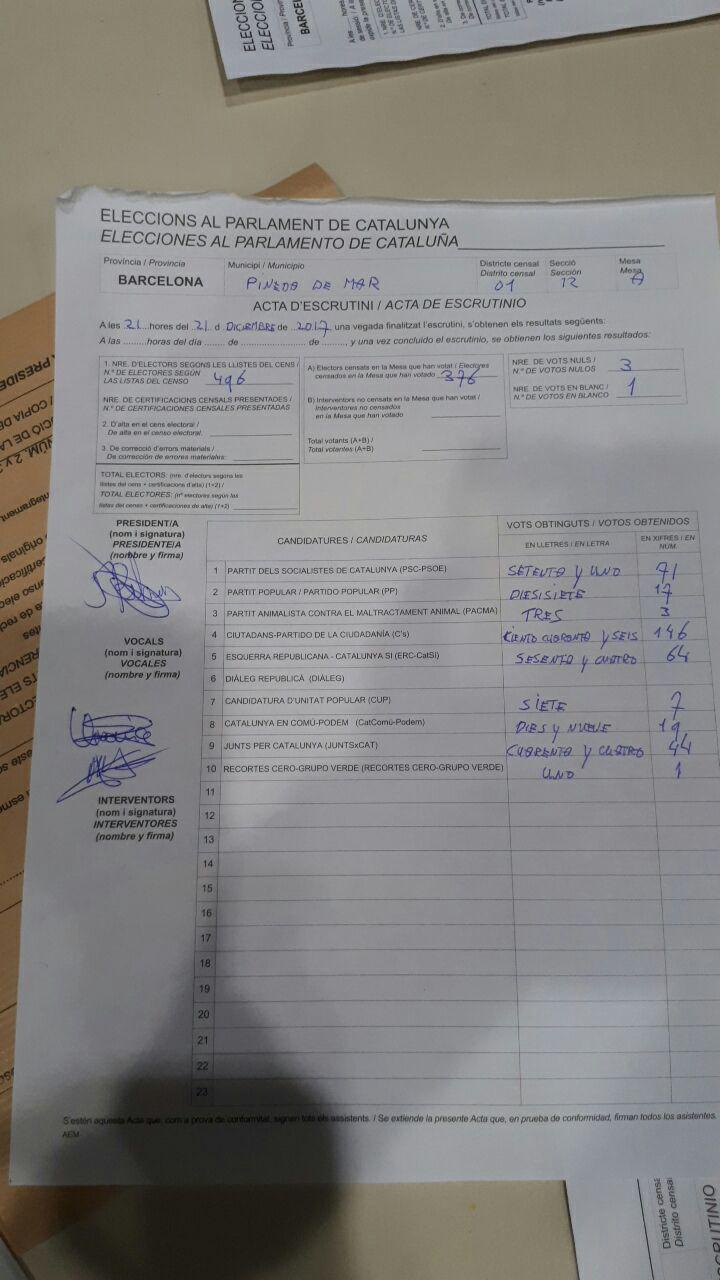 ELECCIONS AL PARLAMENT DE CATALUNYA
ELECCIONES AL PARLAMENTO DE CATALUÑA
Província / Provincia
BARCELONA
Municipi / Municipio
PINEDA DE MAR
Districte censal
Distrito censal
01
Secció
Sección
12
Mesa
Mesa
A
ACTA D'ESCRUTINI / ACTA DE ESCRUTINIO
A les 21 hores del 21 d DICIEMBRE de 2017 una vegada finalitzat l'escrutini, s'obtenen els resultats següents:
A las ......... horas del día ....... de ........................ de ........., y una vez concluido el escrutinio, se obtienen los siguientes resultados:
1. NRE. D'ELECTORS SEGONS LES LLISTES DEL CENS /
N.º DE ELECTORES SEGÚN
LAS LISTAS DEL CENSO 496
NRE. DE CERTIFICACIONS CENSALS PRESENTADES /
N.º DE CERTIFICACIONES CENSALES PRESENTADAS
2. D'alta en el cens electoral /
De alta en el censo electoral.
3. De correcció d'errors materials /
De corrección de errores materiales:
TOTAL ELECTORS: (nre. d'electors segons les
llistes del cens + certificacions d'alta) (1+2) /
TOTAL ELECTORES: (nº electores según las
listas del censo + certificaciones de alta) (1+2)
A) Electors censats en la Mesa que han votat / Electores
censados en la Mesa que han votado 376
B) Interventors no censats en la Mesa que han votat /
Interventores no censados
en la Mesa que han votado
Total votants (A+B) /
Total votantes (A+B)
NRE. DE VOTS NULS /
N.º DE VOTOS NULOS 3
NRE. DE VOTS EN BLANC /
N.º DE VOTOS EN BLANCO 1
PRESIDENT/A
(nom i signatura)
PRESIDENTE/A
(nombre y firma)
VOCALS
(nom i signatura)
VOCALES
(nombre y firma)
INTERVENTORS
(nom i signatura)
INTERVENTORES
(nombre y firma)
CANDIDATURES / CANDIDATURAS
VOTS OBTINGUTS / VOTOS OBTENIDOS
EN LLETRES / EN LETRA
EN XIFRES / EN NÚM.
1 PARTIT DELS SOCIALISTES DE CATALUNYA (PSC-PSOE) SETENTA Y UNO 71
2 PARTIT POPULAR / PARTIDO POPULAR (PP) DIESISIETE 17
3 PARTIT ANIMALISTA CONTRA EL MALTRACTAMENT ANIMAL (PACMA) TRES 3
4 CIUTADANS-PARTIDO DE LA CIUDADANÍA (C's) CIENTO CUARENTA Y SEIS 146
5 ESQUERRA REPUBLICANA - CATALUNYA SI (ERC-CatSí) SESENTA Y CUATRO 64
6 DIÀLEG REPUBLICÀ (DIÀLEG)
7 CANDIDATURA D'UNITAT POPULAR (CUP) SIETE 7
8 CATALUNYA EN COMÚ-PODEM (CatComú-Podem) DIES Y NUEVE 19
9 JUNTS PER CATALUNYA (JUNTSxCAT) CUARENTA Y CUATRO 44
10 RECORTES CERO-GRUPO VERDE (RECORTES CERO-GRUPO VERDE) UNO 1
11
12
13
14
15
16
17
18
19
20
21
22
23
S'estén aquesta Acta que, com a prova de conformitat, signen tots els assistents. / Se extiende la presente Acta que, en prueba de conformidad, firman todos los asistentes.
AEM
Districte censal
Distrito censal